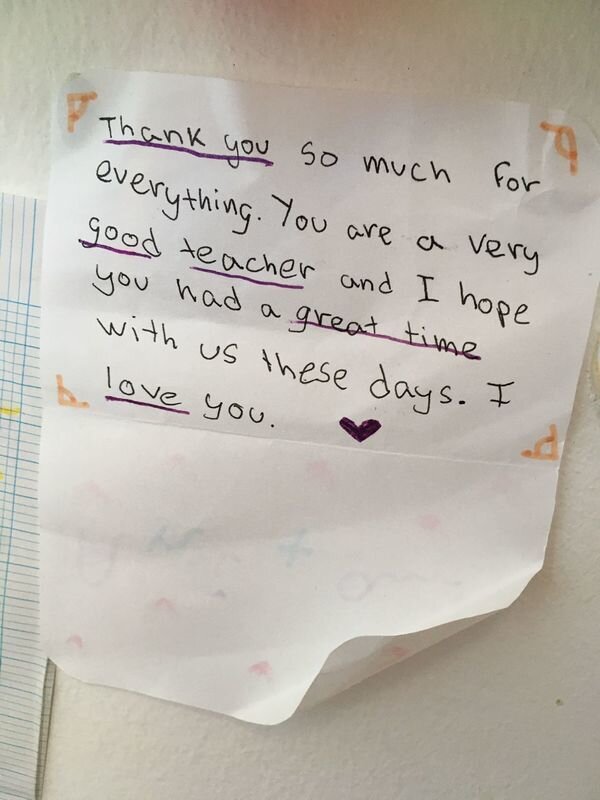 Thank you so much for
everything. You are a very
good teacher and I hope
you had a great time
with us these days. I
love you.